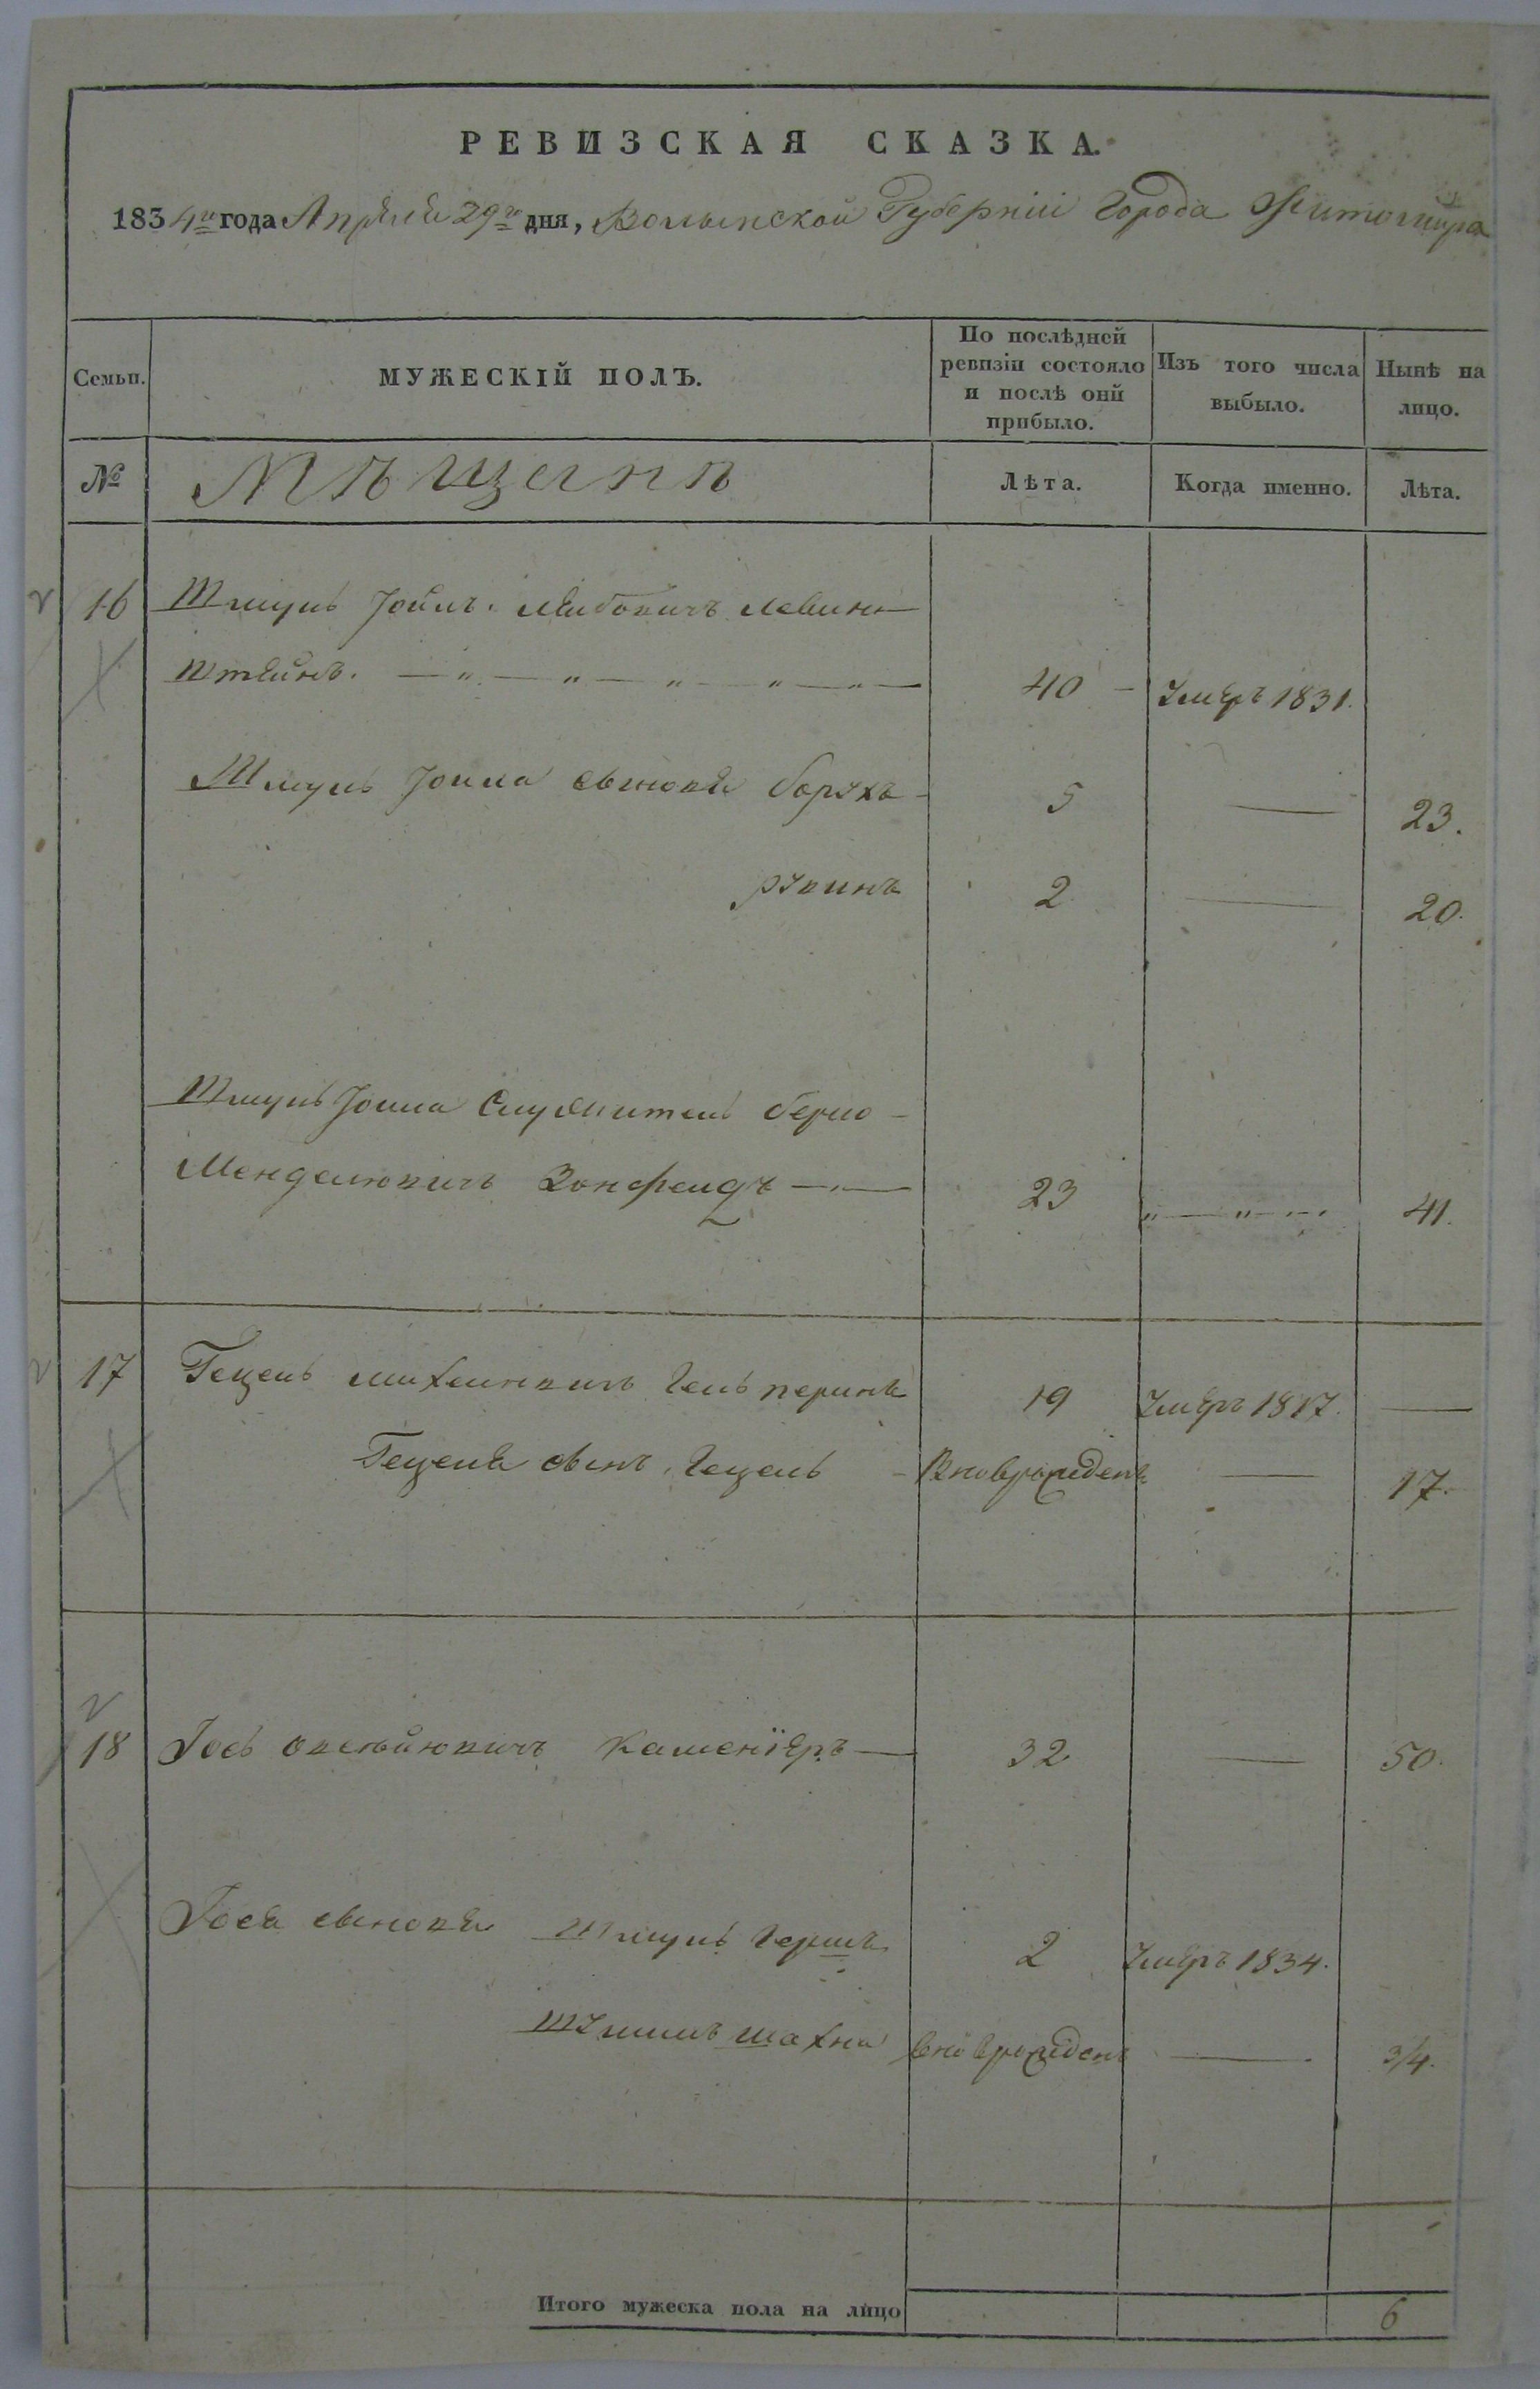 РЕВИЗСКАЯ СКАЗКА.
1834го года Апреля 29го дня, Волынской Губерніи Города Житомира
Семьи.
МУЖЕСКІЙ ПОЛЪ.
По послѣдней ревизіи состояло и послѣ оній прибыло.
Изъ того числа выбыло.
Нынѣ на лицо.
№
Мѣщане
Лѣта.
Когда именно.
Лѣта.
16 Шмуль Іойлъ Лейбовичъ Левин
штейнъ. 40 Умеръ 1831.
Шмуль Іойла сыновя Борухъ 5 23.
2 20.
Шмуль Іойла Служитель Берко
Менделіовичъ Зонфелдъ 23 41.
17 Гецель Михеліовичъ Гельперинъ 19 Умеръ 1817.
Гецеля сынъ Гецель Вноврожденъ 17.
18 Іосъ Каменіеръ 32 50.
Іося сыновя Шмуль Гершъ 2 Умеръ 1834.
Шахна Вноврожденъ 3/4.
Итого мужеска пола на лицо 6